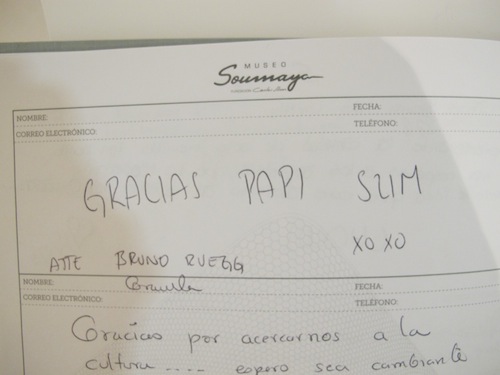 MUSEO
Soumaya
FUNDACIÓN Carlos Slim
NOMBRE:
FECHA:
CORREO ELECTRÓNICO:
TELÉFONO:
GRACIAS PAPI SLIM
XO XO
ATTE BRUNO RUEGG
NOMBRE:
FECHA:
CORREO ELECTRÓNICO:
TELÉFONO:
Gracias por acercarnos a la
cultura.... espero sea cambiante